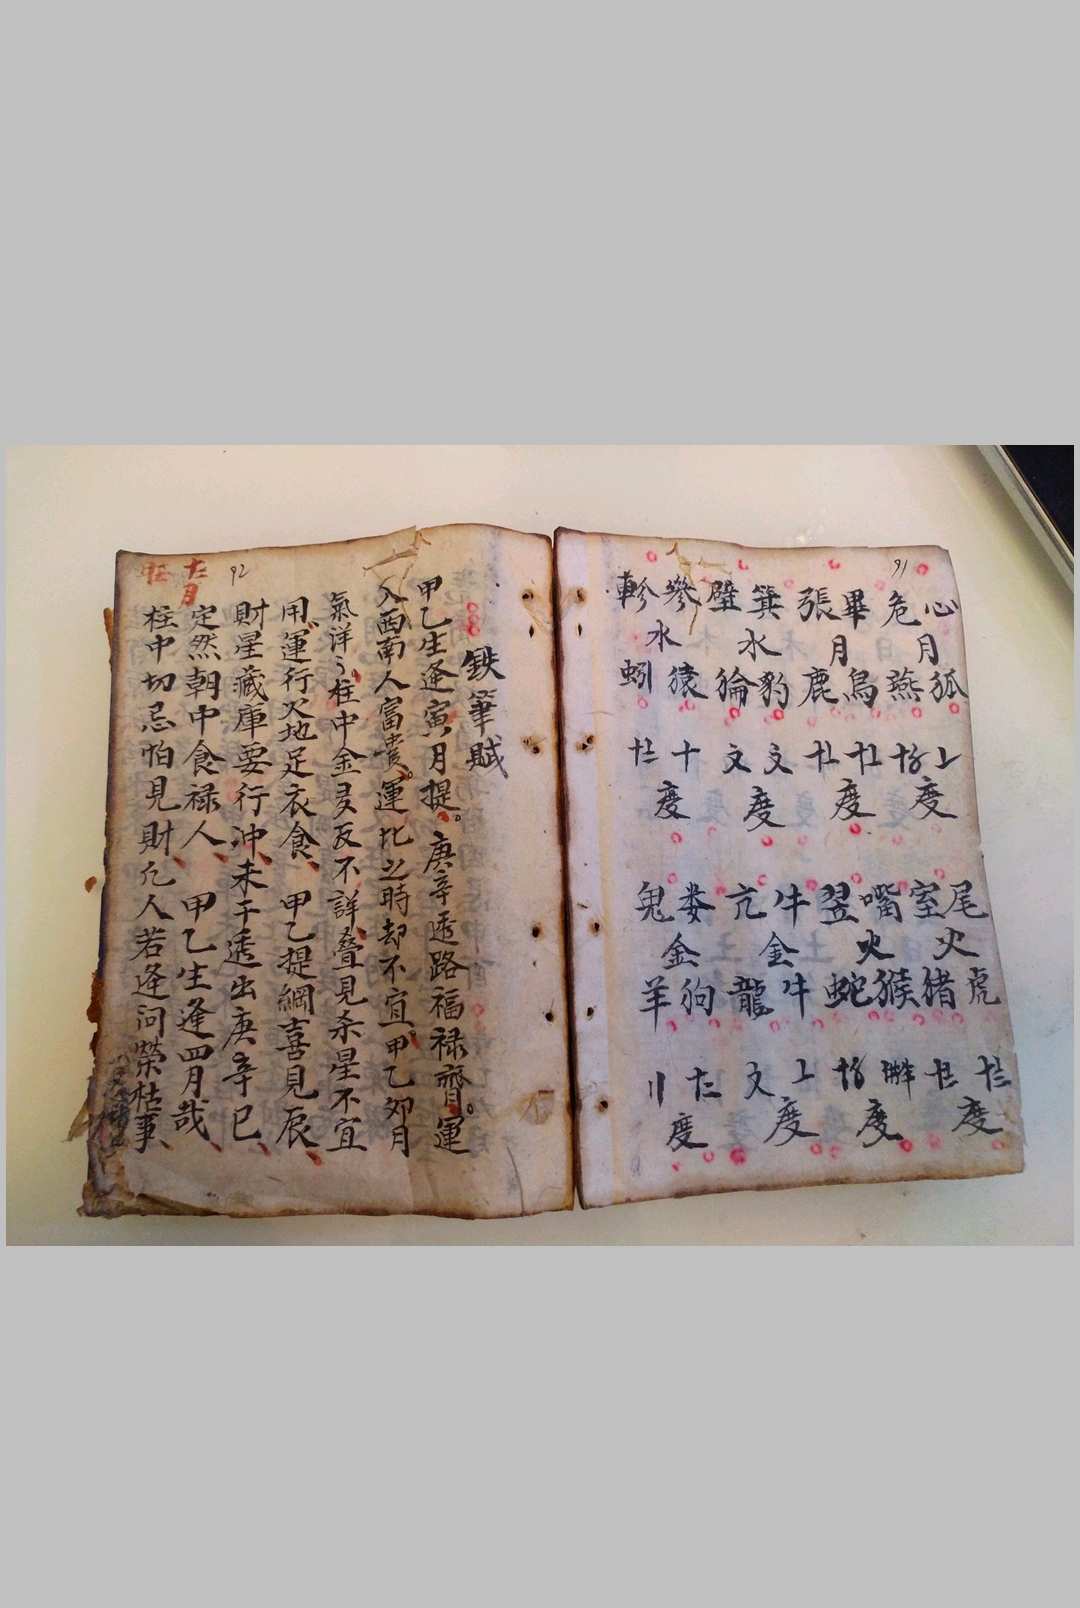 91
心危畢張箕壁參軫
月月水水
狐燕烏鹿豹㺄猿蚓
度度度度
尾室嘴翌牛亢娄鬼
火火金金
虎猪猴蛇牛龍狗羊
度度度度
92
鉄筆賦
甲乙生逢寅月提。庚辛透路福禄齊。運
入西南人富貴。運比之時却不宜。甲乙夘月
氣洋〻。柱中金旻反不詳、叠見杀星不宜
用。運行火地足衣食、甲乙提綱喜見辰、
財星藏庫要行冲、未干透出庚辛巳、
定然朝中食禄人、甲乙生逢四月哉、
柱中切忌怕見財、凢人若逢问榮枯事、
十二月